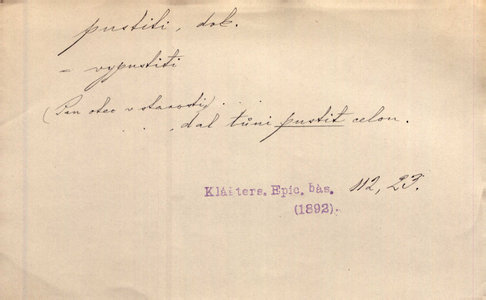 pustiti, dok.
- vypustiti
(Pan otec v starosti) . . .
. . . dal tůni pustit celou.
Klášters. Epic. bás. 112, 23.
(1892).